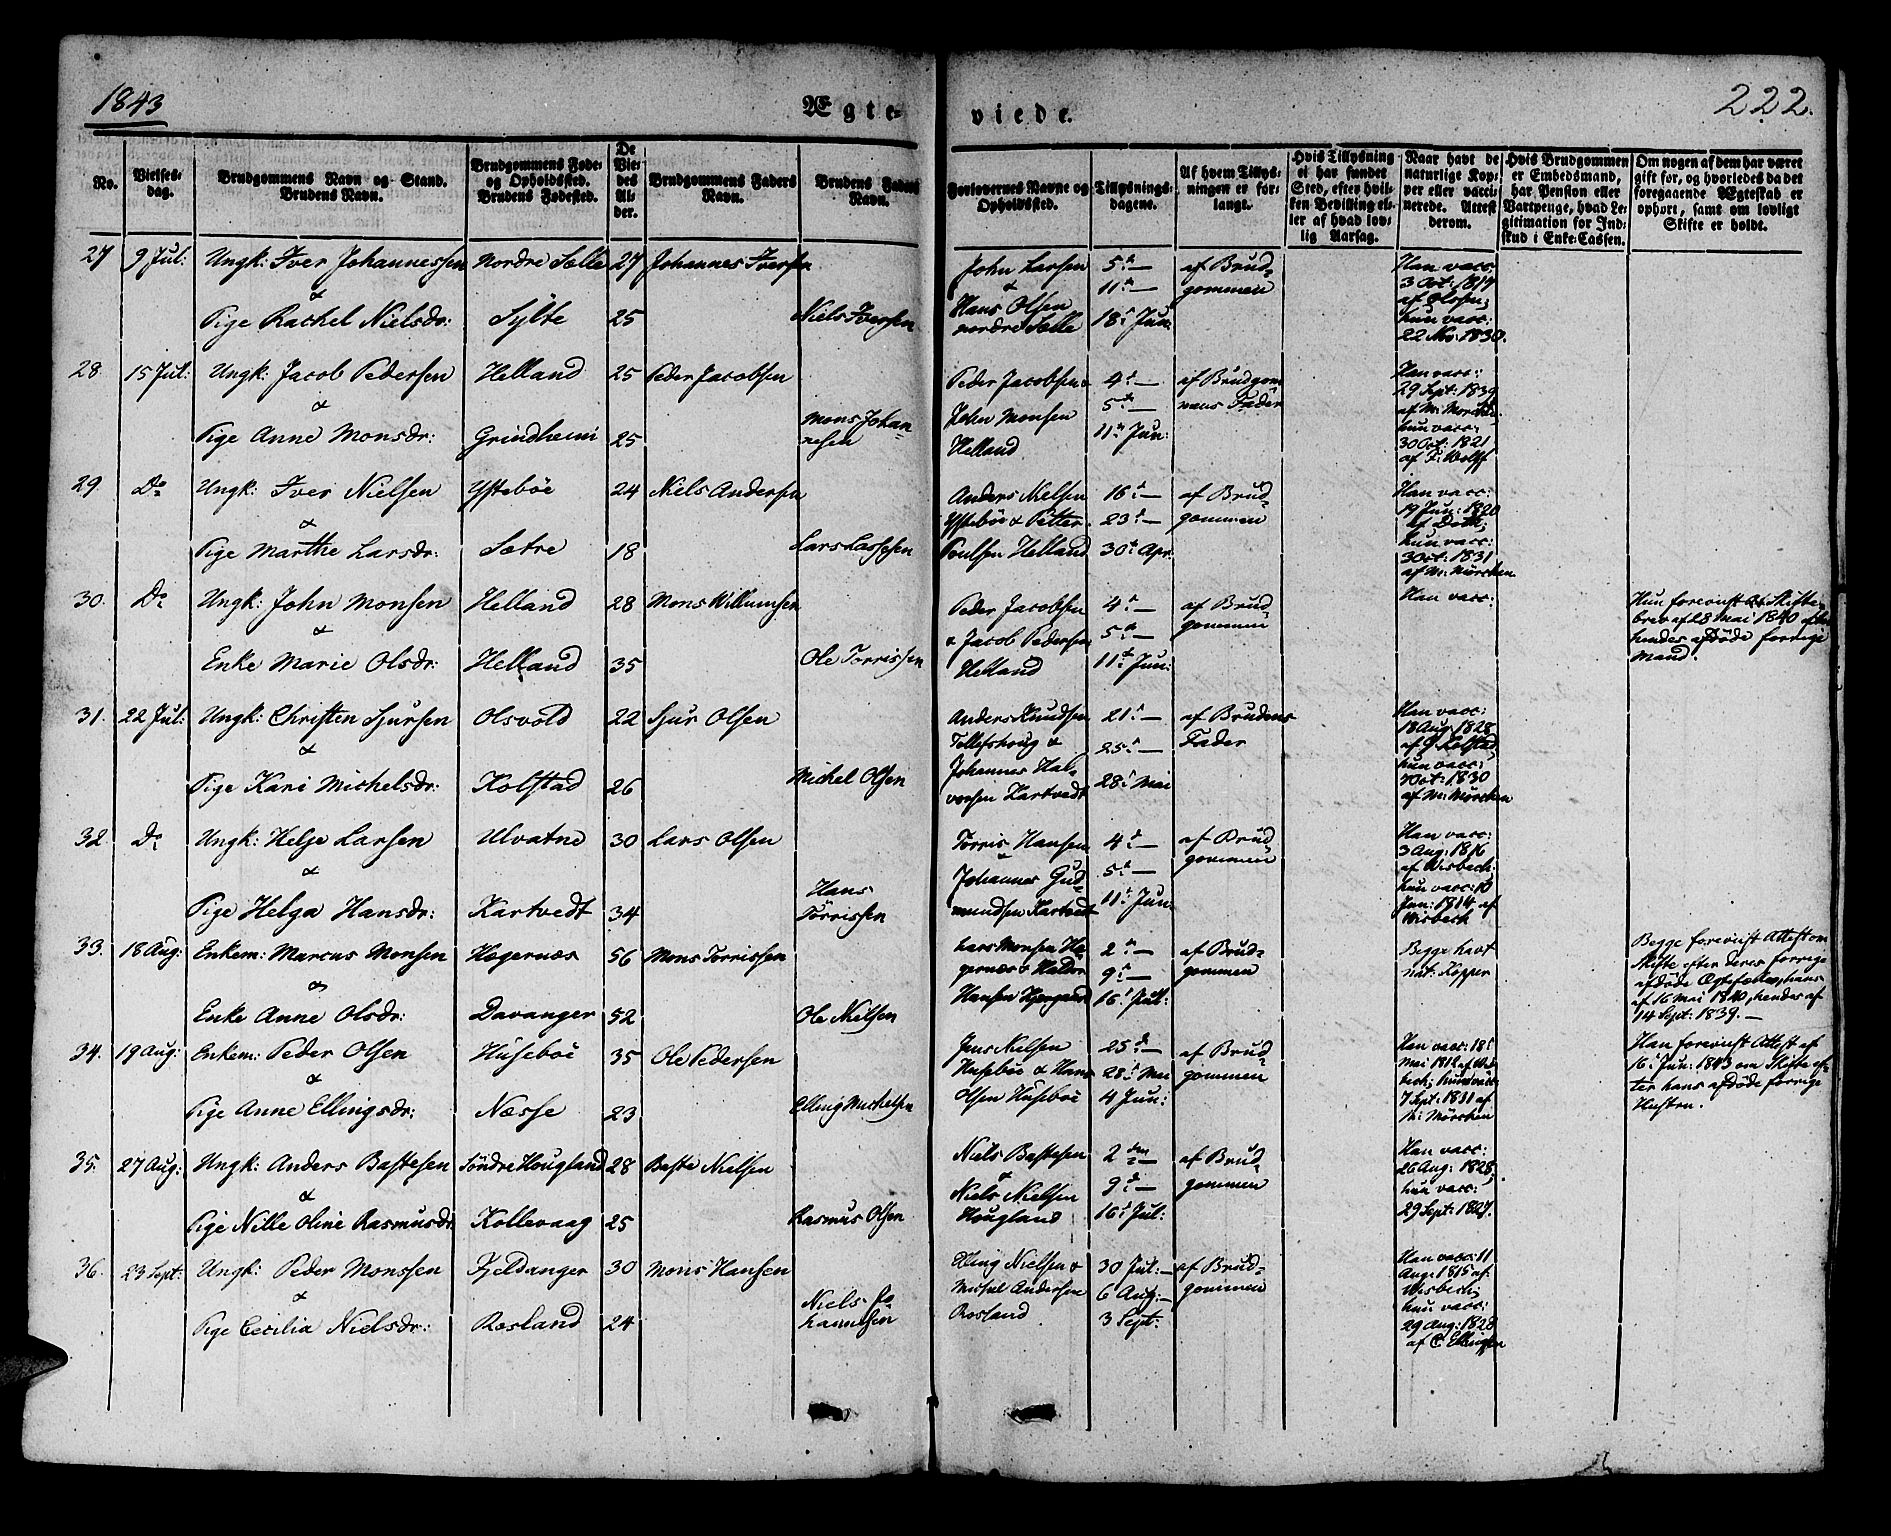 1843
Ægte-
viede.
222.
No.
Vielses-dag.
Brudgommens Navn og Stand. Brudens Navn.
Brudgommens Føde- og Opholdssted. Brudens Fødested.
De Viedes Alder.
Brudgommens Faders Navn.
Brudens Faders Navn.
Forlovernes Navne og Opholdssted.
Tillysnings-dagene.
Af hvem Tillysningen er forlangt.
Hvis Tillysning ei har fundet Sted, efter hvilken Bevilling eller af hvad lovlig Aarsag.
Naar havt de naturlige Kopper eller vaccinerede. Attest derom.
Hvis Brudgommen er Embedsmand, har Pension eller Vartpenge, hvad Legitimation for Indskud i Enke-Cassen.
Om nogen af dem har været gift før, og hvorledes da det foregaaende Ægteskab er ophørt, samt om lovligt Skifte er holdt.
27 9 Jul: Ungk: Iver Johannessen Nordre Sælle 27 Johannes Iversen
&
Pige Rachel Nielsdr: Sylte 25 Niels Iversen
John Larsen & Hans Olsen nordre Sælle
5te — 11te — 18de Jun:
af Brudgommen
Han vacc: 3 Oct: 1817 af Olsen; hun vacc: 22 No: 1830.
28 15 Jul: Ungk: Jacob Pedersen Helland 25 Peder Jacobsen
&
Pige Anne Monsdr: Grindheim 25 Mons Johannesen
Peder Jacobsen & John Monsen Helland
4de — 5te — 11te Jun:
af Brudgommens Fader
Han vacc: 29 Sept: 1839 af M: Mörch hun vacc: 30 Oct: 1821 af F: Wolff
29 Do Ungk: Iver Nielsen Ystebøe 24 Niels Andersen
&
Pige Marthe Larsdr: Sætre 18 Lars Lassesen
Anders Nielsen Ystebøe & Petter Poulsen Helland
16de — 23de — 30te Apr.
af Brudgommen
Han vacc: 19 Jun: 1820 af Doth; hun vacc: 3 Oct: 1831 af M: Mörchen
30. Do Ungk: John Monsen Helland 28 Mons Willumsen
&
Enke Marie Olsdr: Helland 35 Ole Torrissen
Peder Jacobsen & Jacob Pedersen Helland
4de — 5te — 11te Jun:
af Brudgommen
Han vacc:
Hun foreviist Skiftebrev af 28 Mai 1840 efter hendes afdøde forrige Mand.
31. 22 Jul: Ungk: Christen Sjursen Olsvold 22 Sjur Olsen
&
Pige Kari Michelsdr: Kolstad 26 Michel Olsen
Anders Knudsen Tollefshoug & Johannes Halvorsen Kartvedt
21de — 25de — 28de Mai
af Brudens Fader
Han vacc: 18 Aug: 1828 af G: Kolstad, hun vacc: Oct: 1830 af M: Mörchen
32 Do Ungk: Helje Larsen Ulvatne 30 Lars Olsen
&
Pige Helga Hansdr: Kartvedt 34 Hans Törrissen
Torris Hansen & Johannes Gudmundsen Kartvedt
4de — 5te — 11te Jun:
af Brudgommen
Han vacc: 3 Aug: 1816 af Wisbech; hun vacc: 10 Jun: 1814 af Wisbech
33. 18 Aug: Enkem: Marcus Monsen Hagernæs 56 Mons Torrissen
&
Enke Anne Olsdr: Davanger 52 Ole Nielsen
Lars Monsen Hagernæs & Haldor Hansen
2den — 9de — 16de Jul:
af Brudgommen
Begge havt nat: Kopper
Begge foreviist Attest om Skifte efter deres forrige afdøde Ægtefæller, hans af 16 Mai 1840, hendes af 14 Sept: 1839. —
34. 19 Aug: Enkem: Peder Olsen Hüsebøe 35 Ole Pedersen
&
Pige Anne Ellingsdr: Næsse 23 Elling Michelsen
Jens Nielsen Husebøe & Hans Olsen Hüsebøe
25de — 28de Mai 4 Jun:
af Brudgommen
Han vacc: 18 Mai 1812 af Wisbech; hun vacc: 7 Sept: 1831 af M: Mörchen
Han foreviist Attest af 16de Jun: 1843 om Skifte efter hans afdøde forrige Hustru.
35. 27 Aug: Ungk: Anders Bastesen Söndre Hougland 28 Baste Nielsen
&
Pige Nille Oline Rasmusdr: Kollevaag 25 Rasmus Olsen
Niels Bastesen & Niels Nielsen Hougland
2den — 9de — 16de Jul:
af Brudgommen
Han vacc: 26 Aug: 1828, hun vacc: 29 Sept: 1827.
36. 23 Sept: Ungk: Peder Monssen Fjeldanger 30 Mons Hansen
&
Pige Cecilia Nielsdr: Røsland 24 Niels Johannesen
Elling Nielsen & Michel Andersen Rosland
30 Jul: — 6 Aug: — 3 Sept:
af Brudgommen
Han vacc: 11 Aug: 1815 af Wisbech, hun vacc: 29 Aug: 1828 af C. Ellingsen